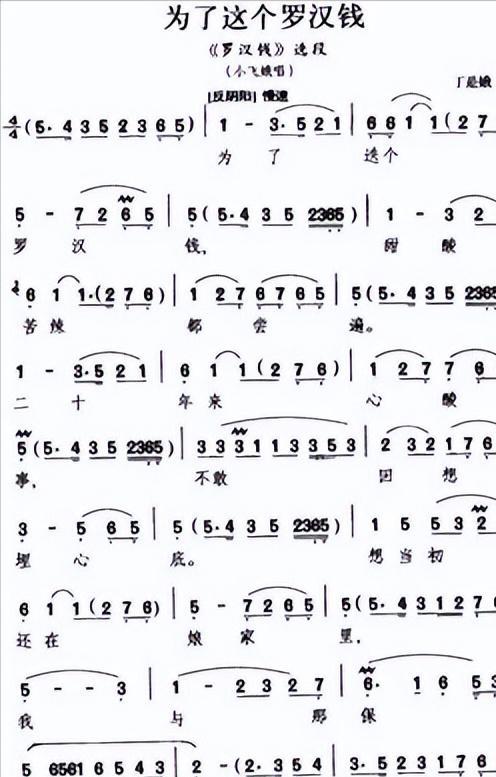 为了这个罗汉钱
《罗汉钱》选段
（小飞娥唱）
丁是娥
[反阴阳] 慢速
4/4 (5· 4 3 5 2 3 6 5) | 1 - 3· 5 2 1 | 6 6 1 1 (2 7
为 了 这个
5 - 7 2 6 5 | 5 (5· 4 3 5 2365) | 1 - 3 2
罗 汉 钱， 甜 酸
6 1 1· (2 7 6) | 1 2 7 6 7 6 5 | 5 (5· 4 3 5 2365
苦辣 都 尝 遍。
1 - 3· 5 2 1 | 6 1 1 (2 7 6) | 1 2 7 7 6
二 十 年来 心 酸
5 (5· 4 3 5 2365) | 3 3 3 1 1 3 3 5 3 | 2 3 2 1 7 6
事， 不敢 回 想
3 - 5 6 5 | 5 (5· 4 3 5 2365) | 1 5 5 3 2
埋 心 底。 想当初
6 1 1 (2 7 6) | 5 - 7 2 6 5 | 5 (5· 4 3 1 2 7 6
还在 娘 家 里，
5 - - 3 | 1 - 2 3 2 7 | 6· 1 6 5 3
我 与 那 保
5 6561 6 5 4 3 | 2 - (2· 3 5 4 | 3· 5 2 3 1 7 6